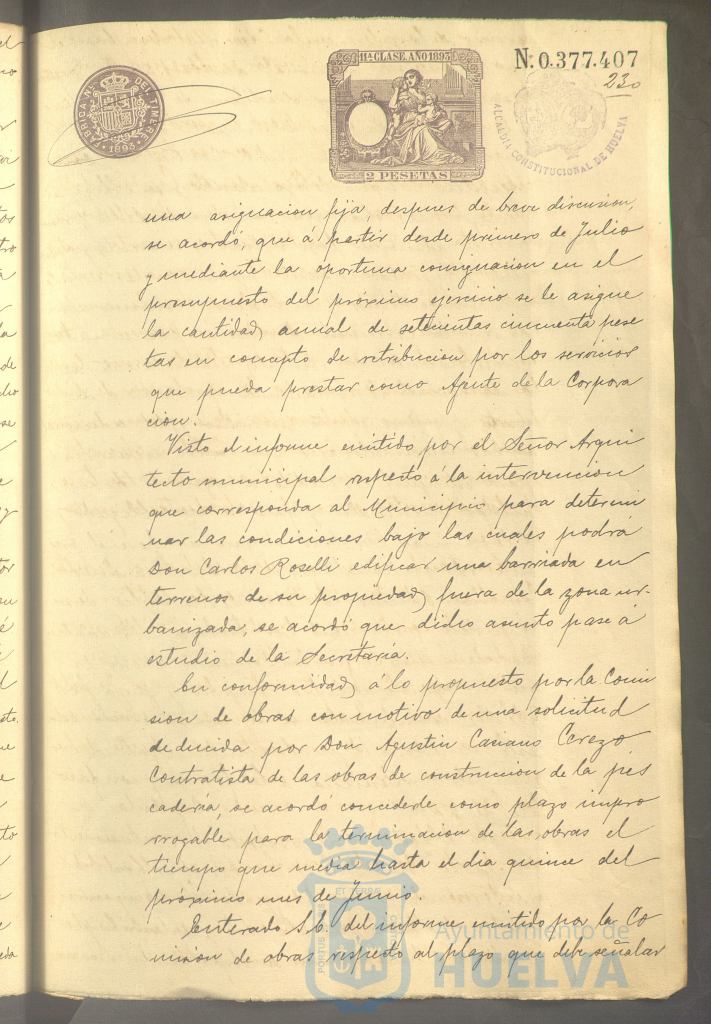 11ª CLASE. AÑO 1893
N. 0.377.407
230
FABRICA NAL DEL TIMBRE
1893
ALCALDIA CONSTITUCIONAL DE HUELVA
2 PESETAS
una asignacion fija, despues de breve discusion,
se acordó, que á partir desde primero de Julio
y mediante la oportuna consignacion en el
presupuesto del próximo ejercicio se le asigne
la cantidad anual de setecientas cincuenta pese
tas en concepto de retribucion por los servicios
que pueda prestar como Agente de la Corpora
cion.
Visto el informe emitido por el Señor Arqui
tecto municipal respecto á la intervencion
que corresponda al Municipio para determi
nar las condiciones bajo las cuales podrá
Don Carlos Roselli edificar una barriada en
terrenos de su propiedad, fuera de la zona ur-
banizada, se acordó que dicho asunto pase á
estudio de la Secretaría.
En conformidad á lo propuesto por la Comi
sion de obras con motivo de una solicitud
deducida por Don Agustin Casiano Cerezo
Contratista de las obras de construccion de la pes
cadería, se acordó concederle como plazo impro
rrogable para la terminacion de las obras el
tiempo que media hasta el dia quince del
próximo mes de Junio.
Enterado S.E. del informe emitido por la Co
mision de obras respecto al plazo que debe señalar
Ayuntamiento de
HUELVA